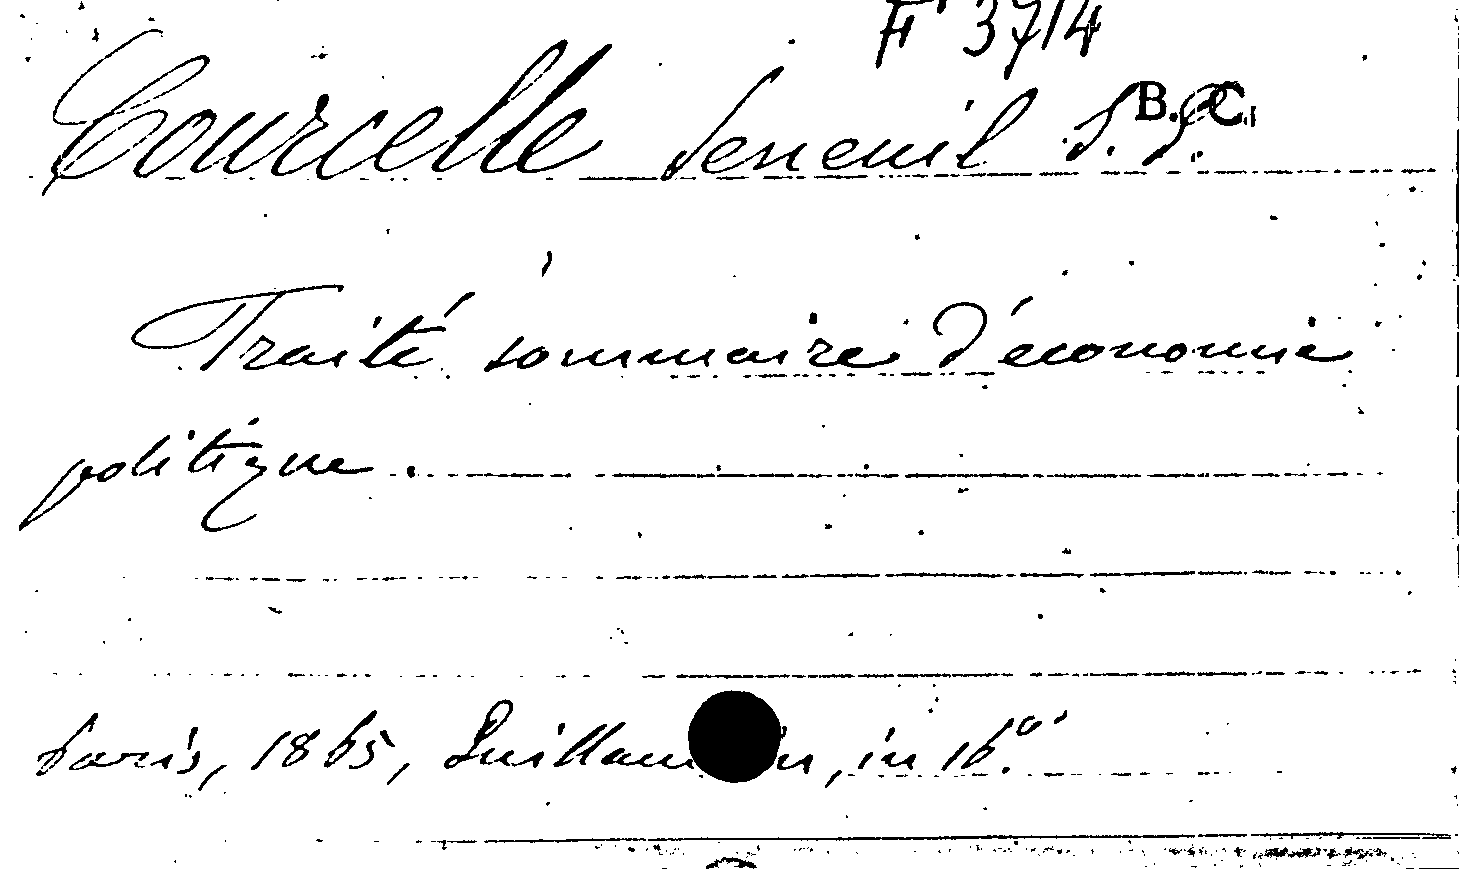 F 3714
B.C.
Courcelle Seneuil J. G.
Traité sommaire d'économie
politique.
Paris, 1865, Guillaumin, in 16°.